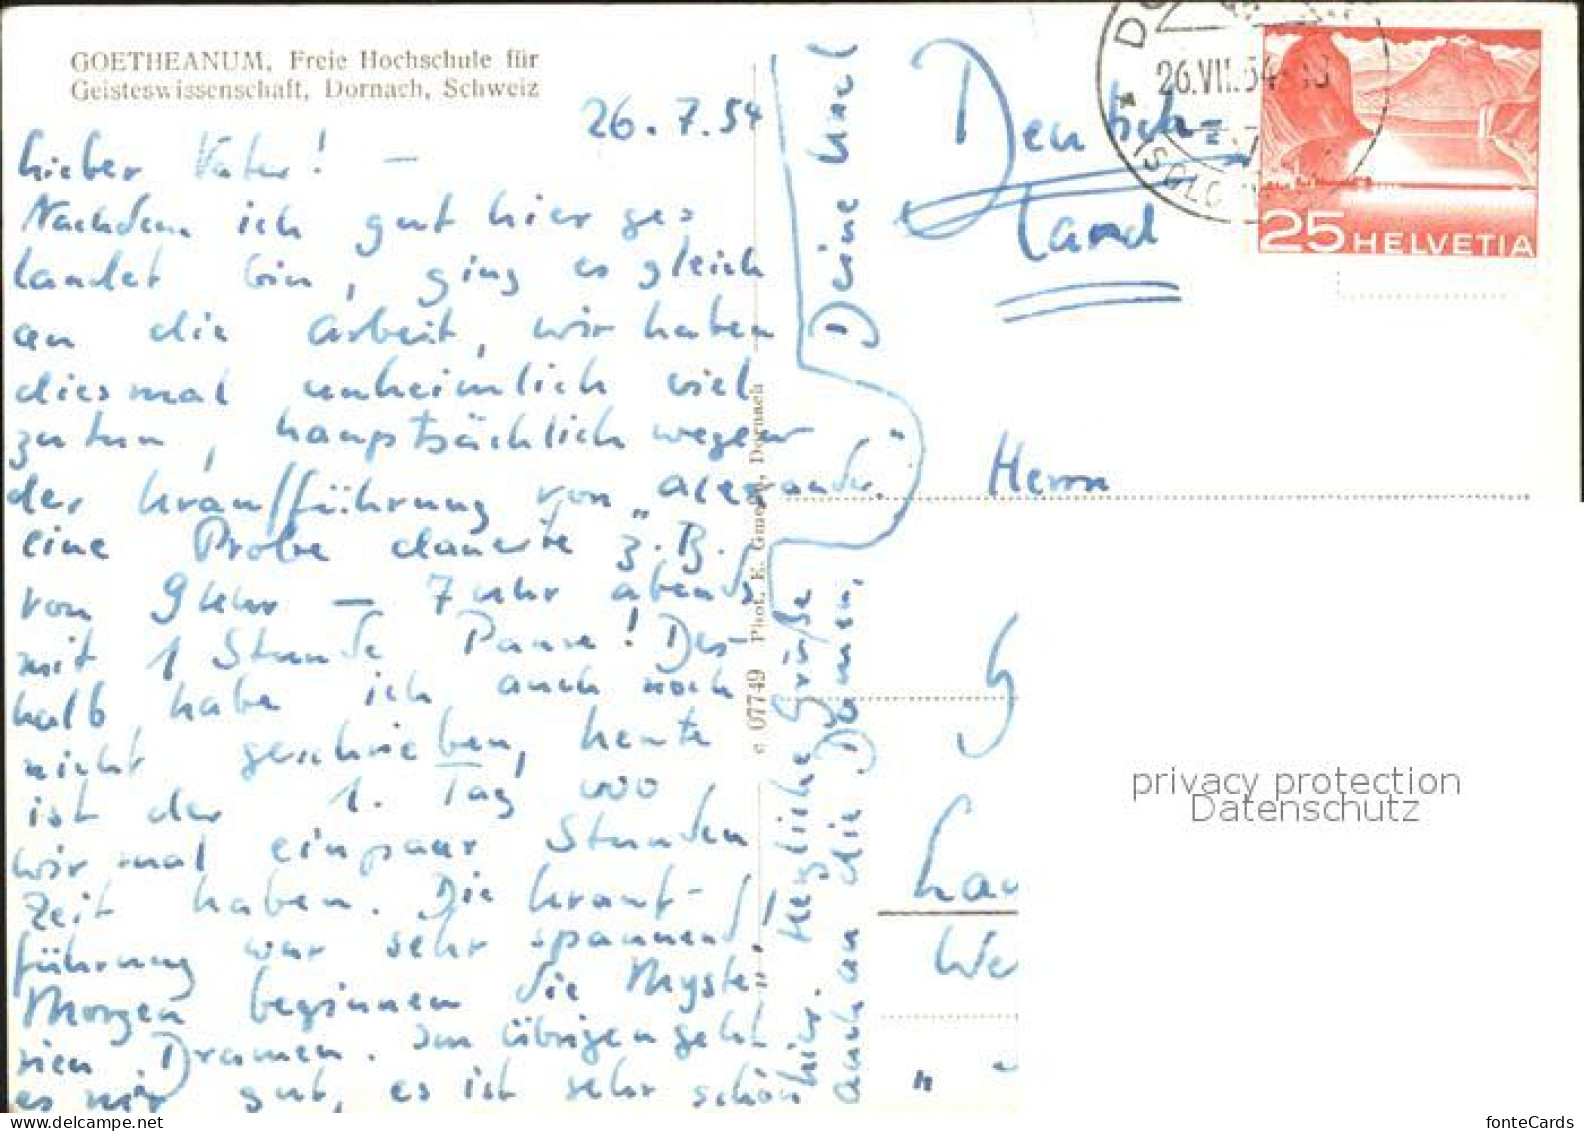 GOETHEANUM, Freie Hochschule für
Geisteswissenschaft, Dornach, Schweiz
26.7.54
Lieber Vater! —
Nachdem ich gut hier ge=
landet bin, ging es gleich
an die Arbeit, wir haben
diesmal unheimlich viel
zu tun, hauptsächlich wegen
der Uraufführung von „Alexander."
eine Probe dauerte z.B.
von 9 Uhr — 7 Uhr abends
mit 1 Stunde Pause! Des-
halb habe ich auch noch
nicht geschrieben, heute
ist der 1. Tag wo
wir mal ein paar Stunden
Zeit haben. Die Urauf-
führung war sehr spannend!
Morgen beginnen die Myste=
rien Dramen. Im übrigen geht
es mir gut, es ist sehr schön
hier. Herzliche Grüße
auch an die Damen,
Deine
c 07749 Phot. E. Gmelin, Dornach
Deutsch=
land
Herrn
26.VII.54
25 HELVETIA
privacy protection
Datenschutz
fonteCards